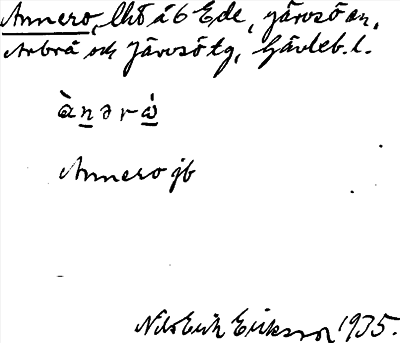 Annero, lht å 6 Ede, Järvsö sn,
Arbrå och Järvsö tg, Gävleb. l.
àṉərώ̱
Annero jb
Nils Erik Eriksson 1935.